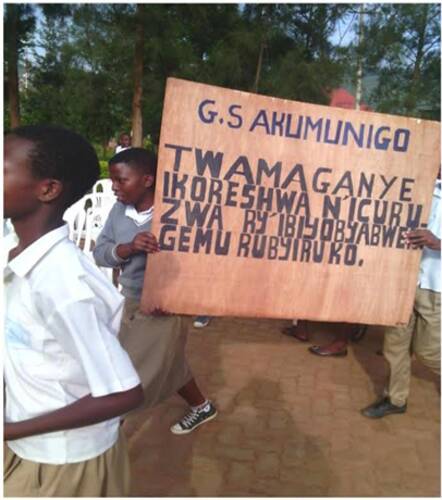 G.S AKUMUNIGO
TWAMAGANYE
IKORESHWA N'ICURU
ZWA RY'IBIYOBYABWE
GEMU RUBYIRUKO.